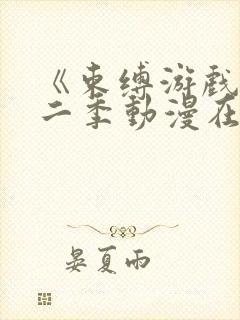 《束缚游戏
二季動漫在
晏夏雨